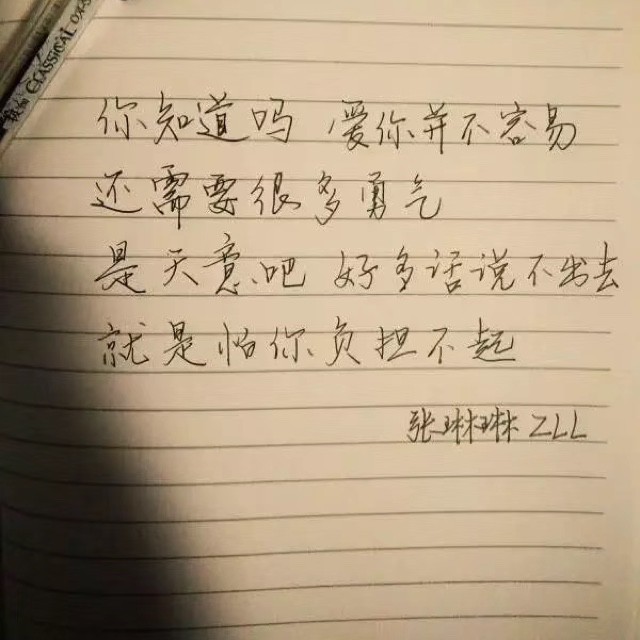 CLASSICAL
你知道吗 爱你并不容易
还需要很多勇气
是天意吧 好多话说不出去
就是怕你负担不起
张琳琳 ZLL